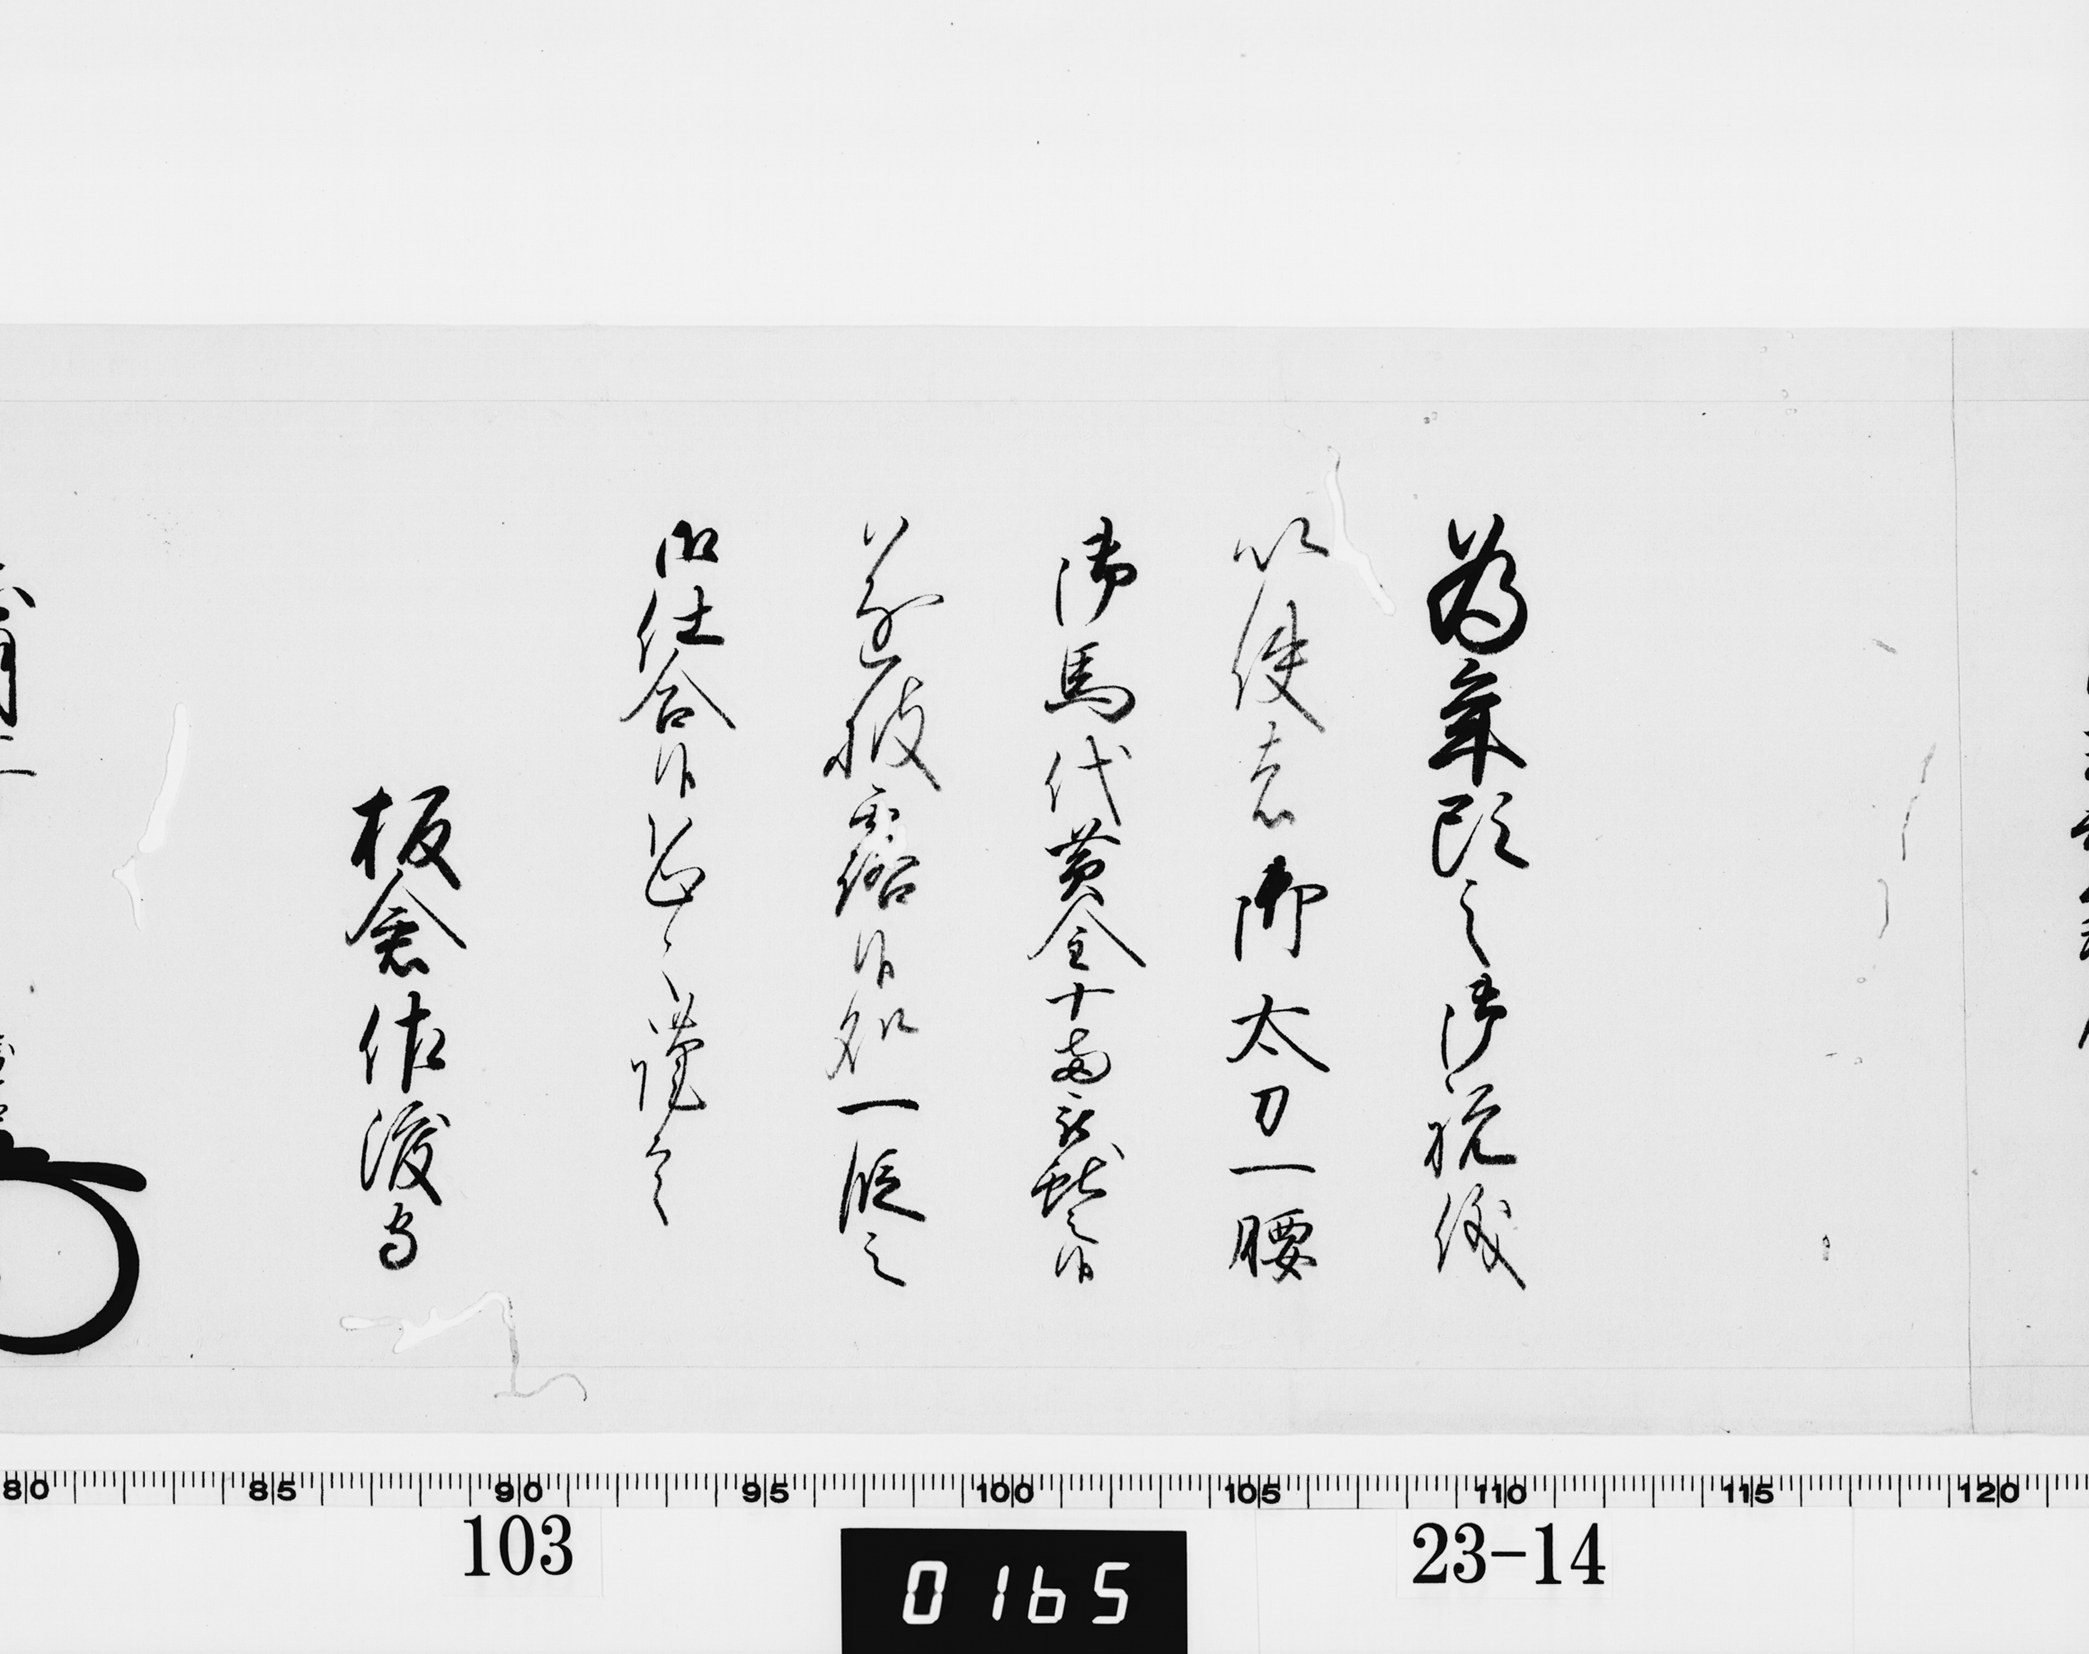 為年頭之御祝儀
以使者御太刀一腰
御馬代黄金十両被献之候
遂披露候処一段之
御仕合候恐々謹言
板倉佐渡守
80 85 90 95 100 105 110 115 120
103
0165
23-14